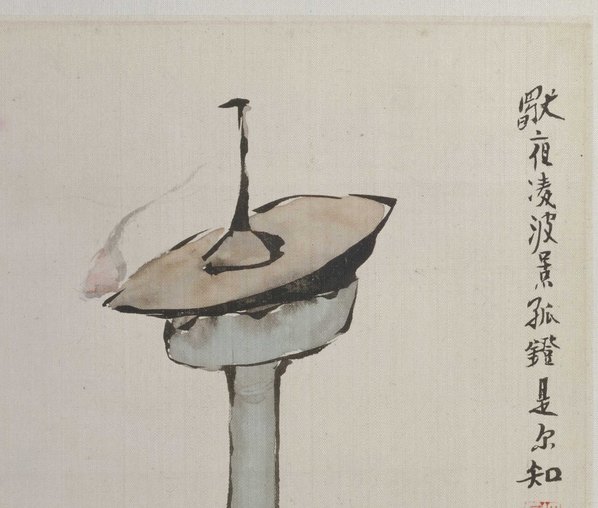 夜凌波景孤鐙是尔知